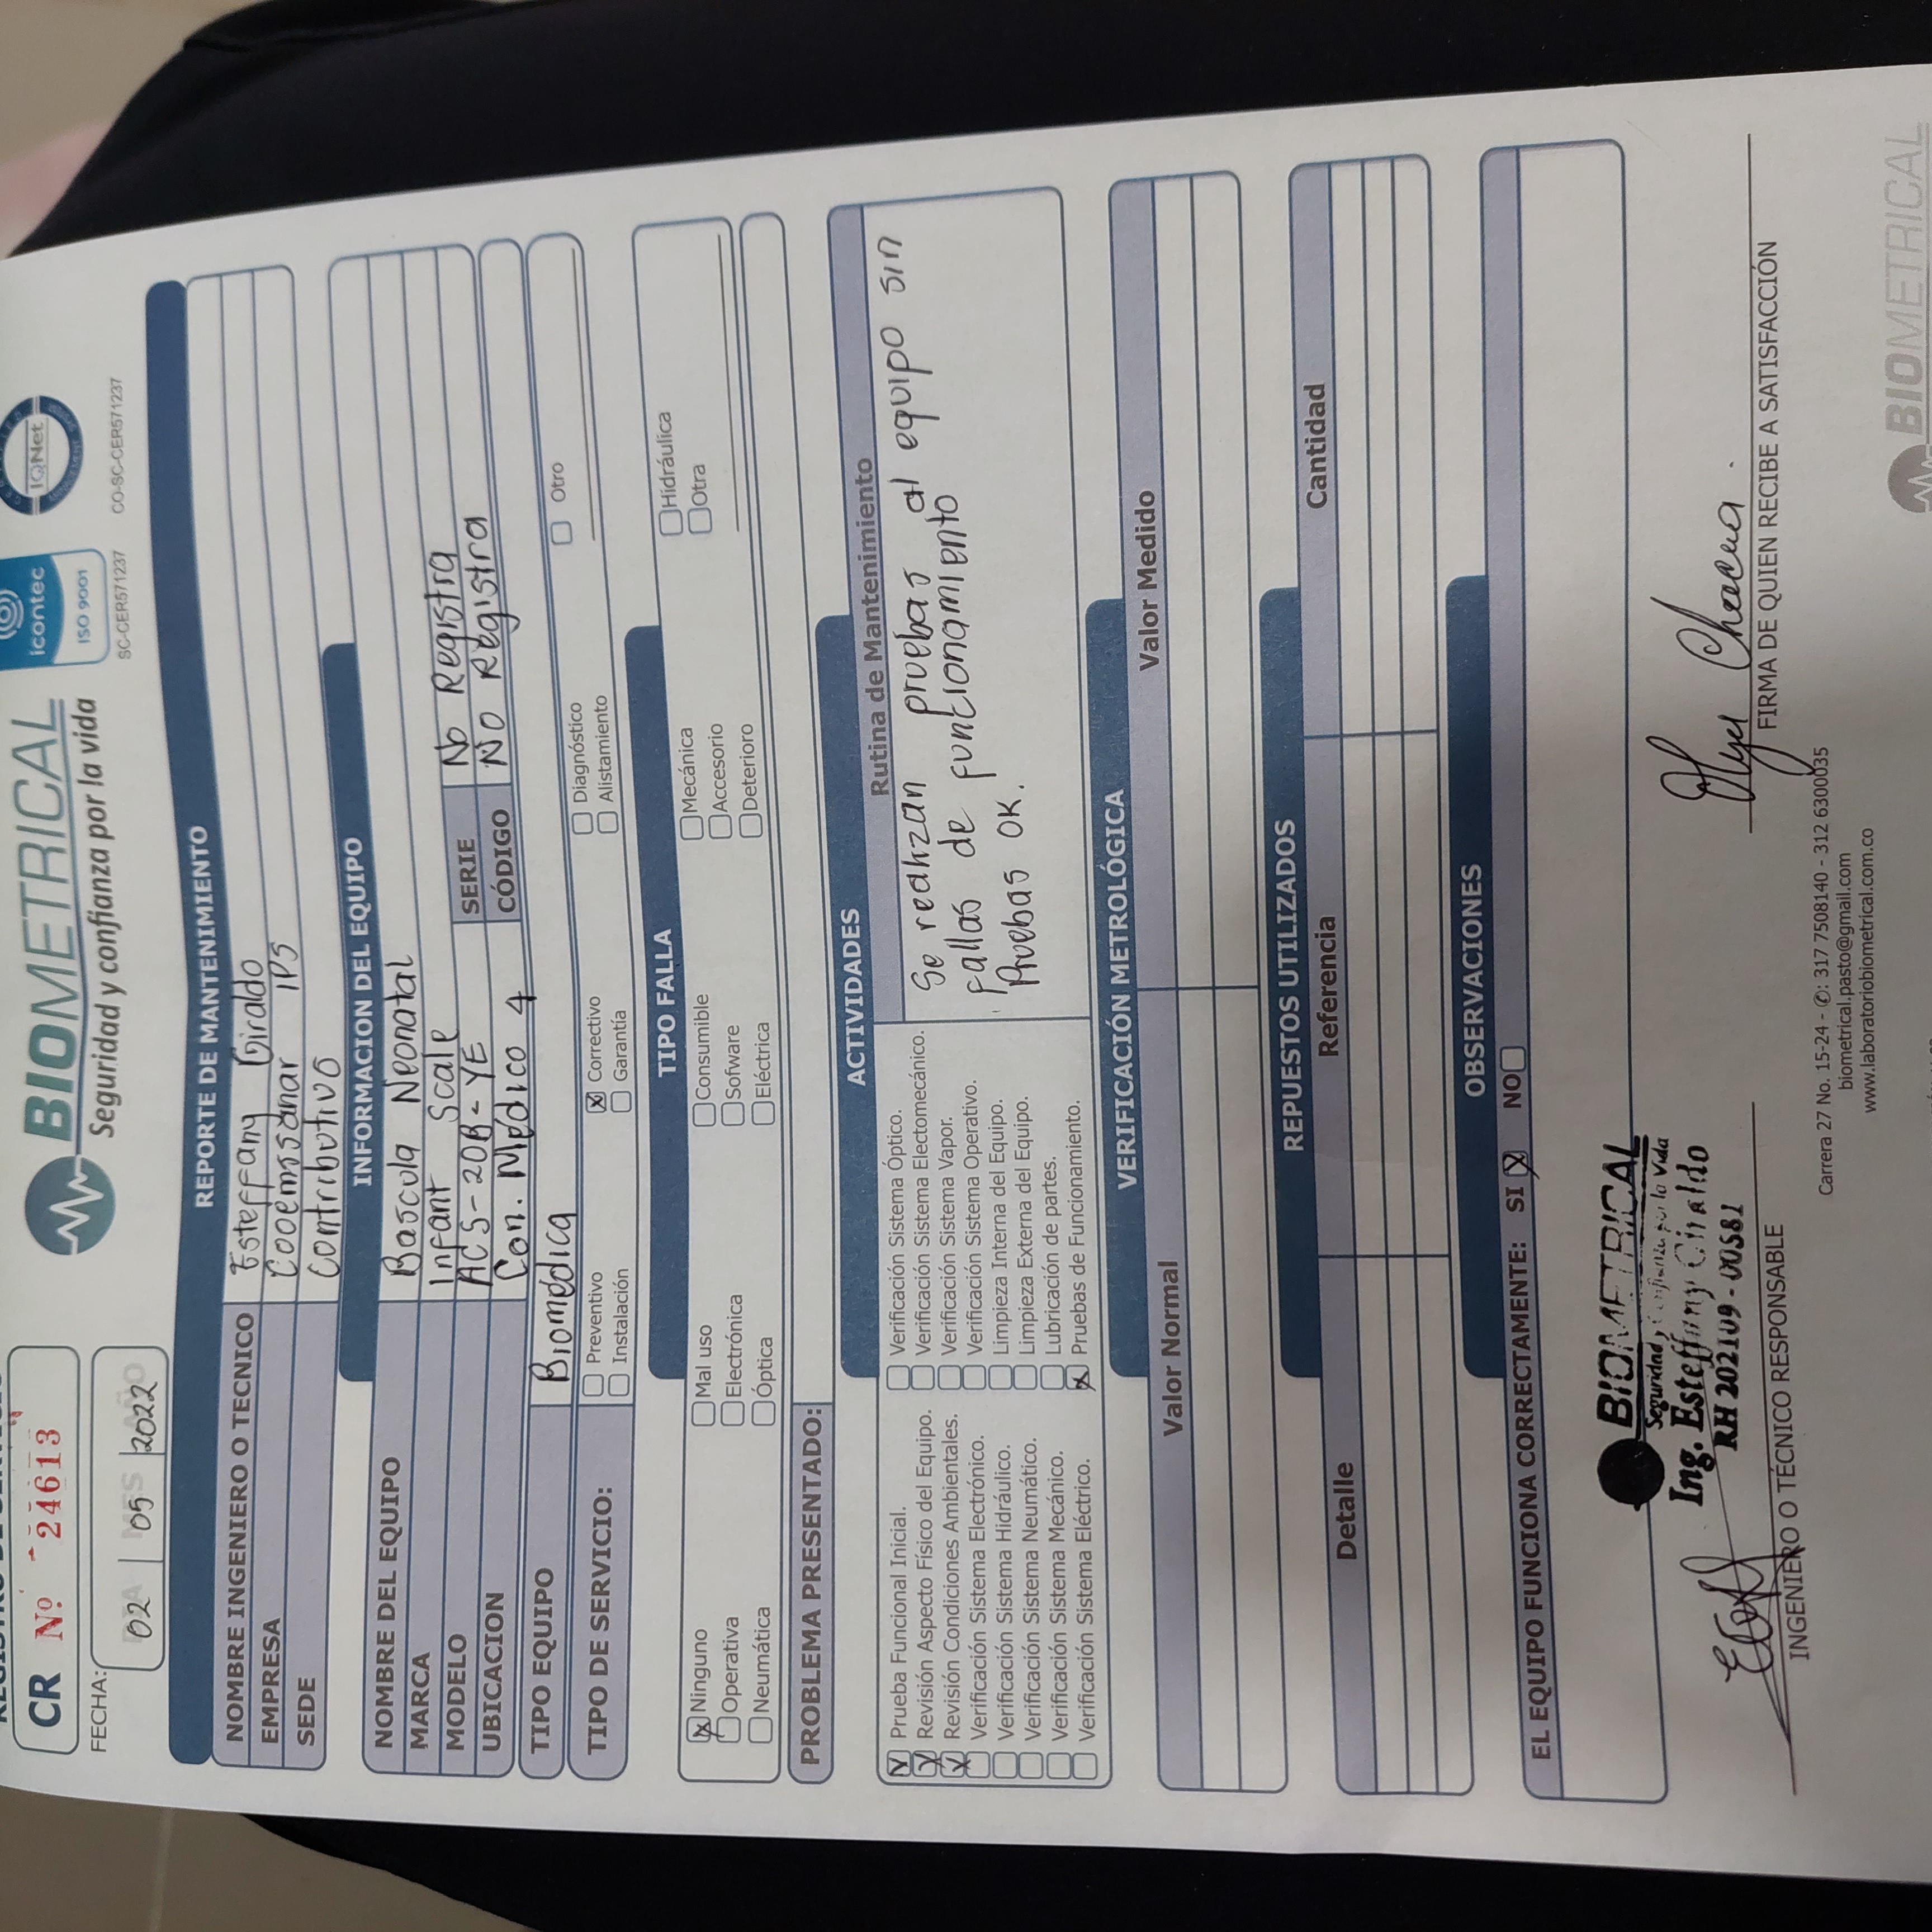 REGISTRO DE SERVICIO
CR Nº 24613
FECHA:
DIA MES AÑO
02 05 2022
BIOMETRICAL
Seguridad y confianza por la vida
icontec
ISO 9001
SC-CER571237
IQNet
CO-SC-CER571237
REPORTE DE MANTENIMIENTO
NOMBRE INGENIERO O TECNICO Esteffany Giraldo
EMPRESA Cooemssanar IPS
SEDE Contributivo
INFORMACION DEL EQUIPO
NOMBRE DEL EQUIPO Bascula Neonatal
MARCA Infant Scale
MODELO ACS-20B-YE SERIE No Registra
UBICACION Con. Médico 4 CÓDIGO No Registra
TIPO EQUIPO Biomédica
TIPO DE SERVICIO:
Preventivo Correctivo Diagnóstico Otro
Instalación Garantía Alistamiento
TIPO FALLA
Ninguno Mal uso Consumible Mecánica Hidráulica
Operativa Electrónica Sofware Accesorio Otra
Neumática Óptica Eléctrica Deterioro
PROBLEMA PRESENTADO:
ACTIVIDADES
Prueba Funcional Inicial.
Revisión Aspecto Físico del Equipo.
Revisión Condiciones Ambientales.
Verificación Sistema Electrónico.
Verificación Sistema Hidráulico.
Verificación Sistema Neumático.
Verificación Sistema Mecánico.
Verificación Sistema Eléctrico.
Verificación Sistema Óptico.
Verificación Sistema Electomecánico.
Verificación Sistema Vapor.
Verificación Sistema Operativo.
Limpieza Interna del Equipo.
Limpieza Externa del Equipo.
Lubricación de partes.
Pruebas de Funcionamiento.
Rutina de Mantenimiento
Se realizan pruebas al equipo sin
fallas de funcionamiento
Pruebas OK.
VERIFICACIÓN METROLÓGICA
Valor Normal Valor Medido
REPUESTOS UTILIZADOS
Detalle Referencia Cantidad
OBSERVACIONES
EL EQUIPO FUNCIONA CORRECTAMENTE: SI NO
BIOMETRICAL
Seguridad y Confianza por la Vida
Ing. Esteffany Giraldo
RH 202109-00581
INGENIERO O TÉCNICO RESPONSABLE
Chacua
FIRMA DE QUIEN RECIBE A SATISFACCIÓN
Carrera 27 No. 15-24 - ✆: 317 7508140 - 312 6300035
biometrical.pasto@gmail.com
www.laboratoriobiometrical.com.co
BIOMETRICAL